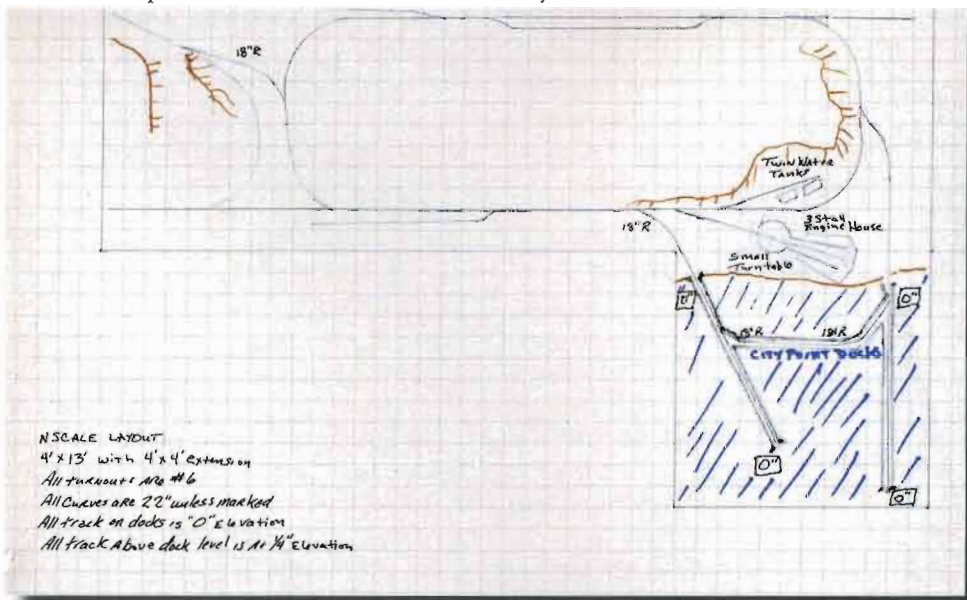 18"R
Twin Water
Tanks
18"R
3 Stall
Engine House
Small
Turntable
0"
0"
18"R
18"R
CITY POINT DOCKS
0"
0"
N SCALE LAYOUT
4' x 13' with 4' x 4' extension
All turnouts are #6
All Curves are 22" unless marked
All track on docks is "0" Elevation
All track Above dock level is At 1/4" Elevation